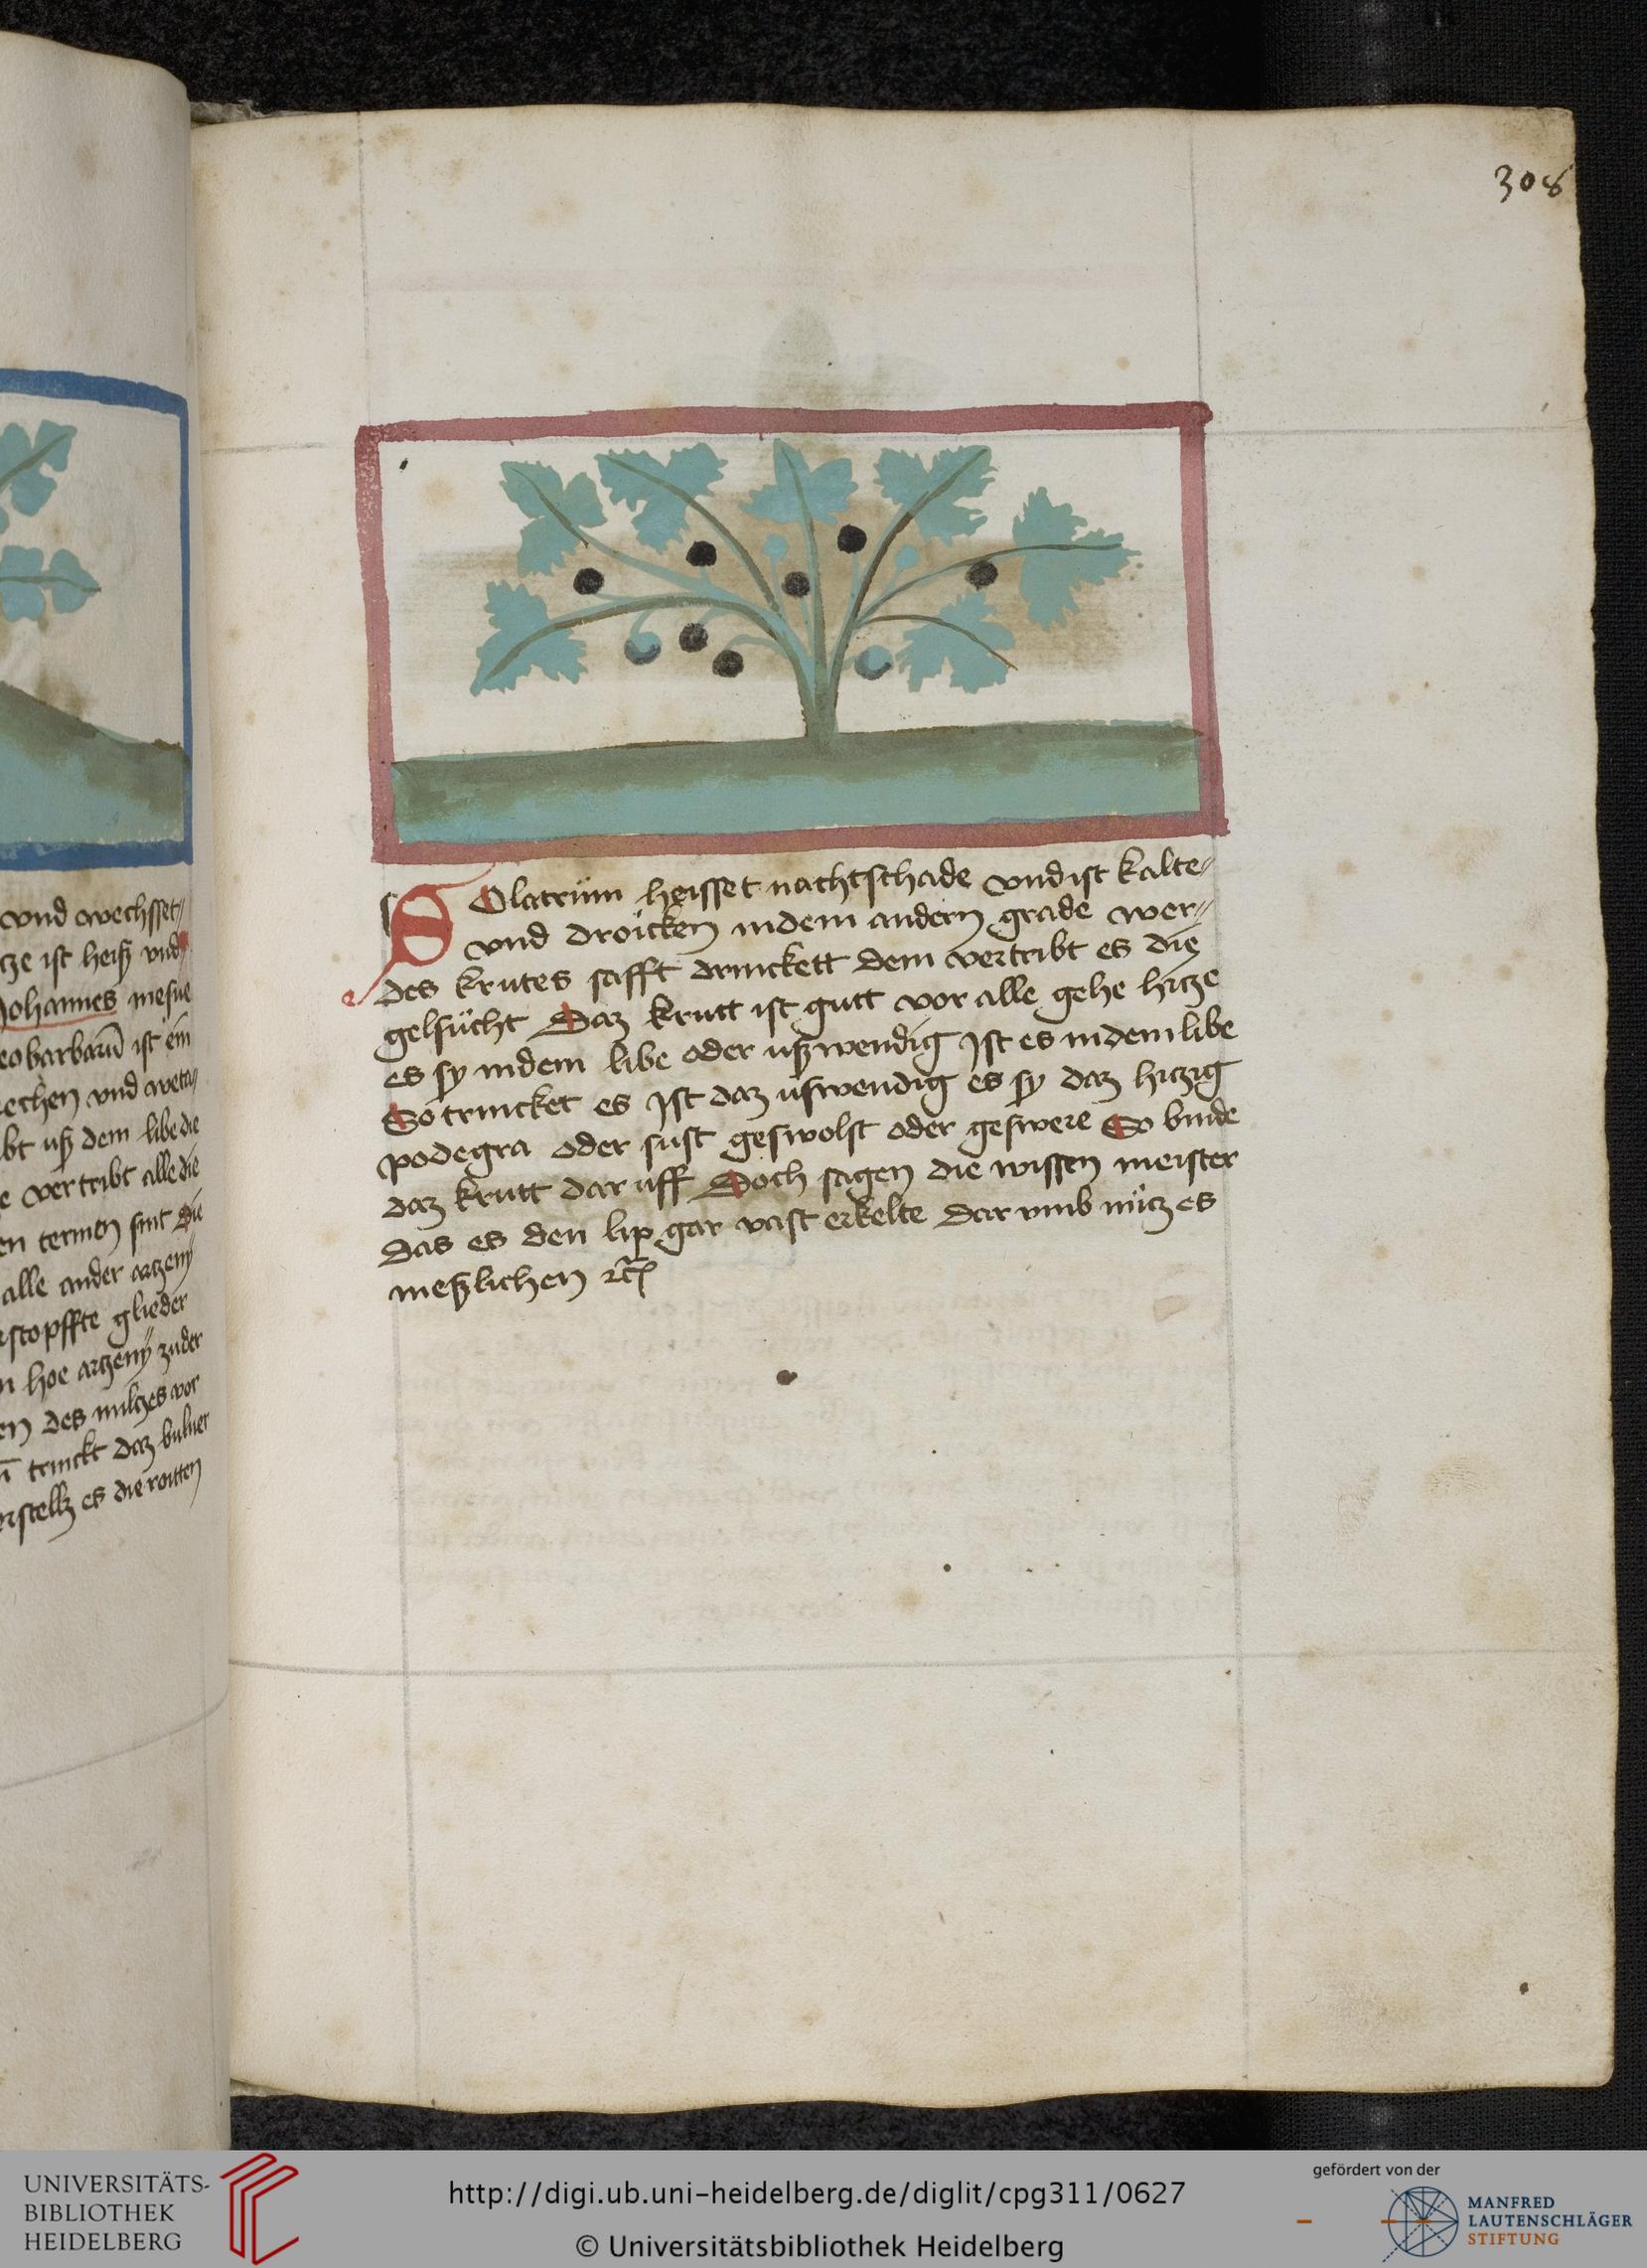 308
vnd wechsset
tze ist heiß vnd
Johannes mesue
eobarbarū ist ein
echen vnd
bt uß dem libe die
e vertribt alle die
en termen sint die
alle ander artzeny
rstopffte glieder
n hoe artzeny zu der
en des miltzes vor
trinckt daz buluer
es die roitten
SOlatrüm heisset nachtschade vnd ist kalte
vnd droücken in dem andern grade wer
des krutes safft drinckett dem vertribt es die
gelsücht Daz krutt ist gutt vor alle gehe hitze
es sy in dem libe oder ußwendig Ist es in dem libe
So trincket es Ist daz ußwendig es sy daz hitzig
podegra oder sust geswolst oder geswere So binde
daz krutt dar uff Doch sagen die wissen meister
Das es den lip gar vast erkelte Dar vmb nütz es
meßlichen ꝛc̃
UNIVERSITÄTS-
BIBLIOTHEK
HEIDELBERG
http://digi.ub.uni-heidelberg.de/diglit/cpg311/0627
© Universitätsbibliothek Heidelberg
gefördert von der
MANFRED
LAUTENSCHLÄGER
STIFTUNG